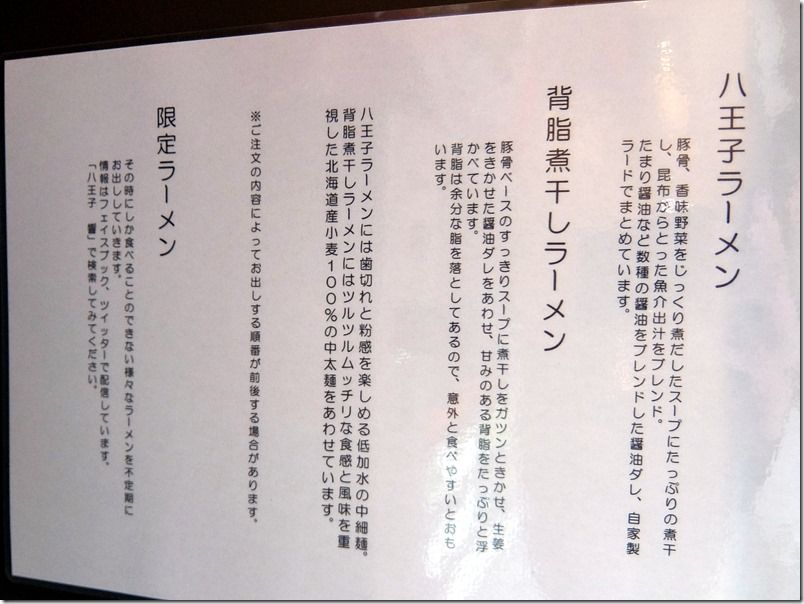 八王子ラーメン
豚骨、香味野菜をじっくり煮だしたスープにたっぷりの煮干
し、昆布からとった魚介出汁をブレンド。
たまり醤油など数種の醤油をブレンドした醤油ダレ、自家製
ラードでまとめています。
背脂煮干しラーメン
豚骨ベースのすっきりスープに煮干しをガツンときかせ、生姜
をきかせた醤油ダレをあわせ、甘みのある背脂をたっぷりと浮
かべています。
背脂は余分な脂を落としてあるので、意外と食べやすいとおも
います。
八王子ラーメンには歯切れと粉感を楽しめる低加水の中細麺。
背脂煮干しラーメンにはツルツルムッチリな食感と風味を重
視した北海道産小麦100%の中太麺をあわせています。
※ご注文の内容によってお出しする順番が前後する場合があります。
限定ラーメン
その時にしか食べることのできない様々なラーメンを不定期に
お出ししていきます。
情報はフェイスブック、ツイッターで配信しています。
「八王子 響」で検索してみてください。